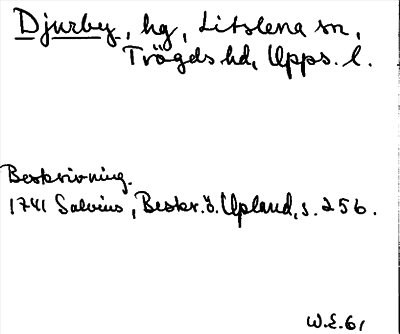 Djurby, hg, Litslena sn,
Trögds hd, Upps. l.
Beskrivning.
1741 Salvius, Beskr. ö. Upland, s. 256.
W.E. 61